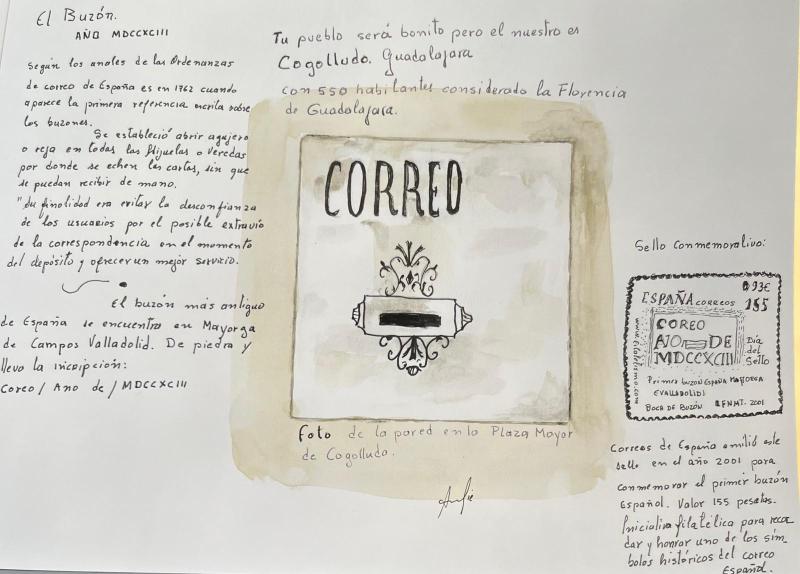 El Buzón.
AÑO MDCCXCIII
Según los anales de las Ordenanzas
de correo de España es en 1762 cuando
aparece la primera referencia escrita sobre
los buzones.
Se estableció abrir agujero
o reja en todas las Hijuelas o Veredas
por donde se echen las cartas, sin que
se puedan recibir de mano.
"Su finalidad era evitar la desconfianza
de los usuarios por el posible extravío
de la correspondencia en el momento
del depósito y ofrecer un mejor servicio.
El buzón más antiguo
de España se encuentra en Mayorga
de Campos Valladolid. De piedra y
lleva la inscipción:
Coreo / Ano de / MDCCXCIII
Tu pueblo será bonito pero el nuestro es
Cogolludo. Guadalajara
con 550 habitantes considerado la Florencia
de Guadalajara.
CORREO
Foto de la pared en la Plaza Mayor
de Cogolludo.
Sello conmemorativo:
0.93€
ESPAÑA correos 155
COREO
AÑO DE
MDCCXCIII
Día
del
Sello
www.filatelismo.com
Primer buzon España Mayorga
(VALLADOLID)
BOCA DE BUZÓN FNMT. 2001
Correos de España emitió este
sello en el año 2001 para
conmemorar el primer buzón
Español. Valor 155 pesetas.
Iniciativa filatélica para recor
dar y honrar uno de los sím
bolos históricos del correo
Español.